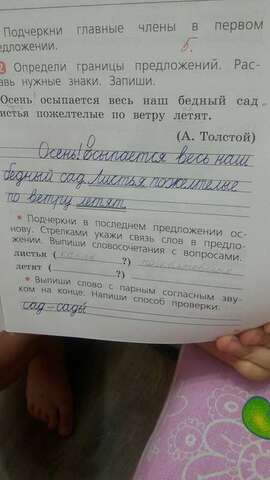 Подчеркни главные члены в первом
едложении.
б.
2 Определи границы предложений. Рас-
авь нужные знаки. Запиши.
Осень осыпается весь наш бедный сад
листья пожелтелые по ветру летят.
(А. Толстой)
Осень! Осыпается весь наш
бедный сад. Листья пожелтелые
по ветру летят.
* Подчеркни в последнем предложении ос-
нову. Стрелками укажи связь слов в предло-
жении. Выпиши словосочетания с вопросами.
листья ( какие ?) пожелтелые
летят ( ?)
* Выпиши слово с парным согласным зву-
ком на конце. Напиши способ проверки.
сад - сады